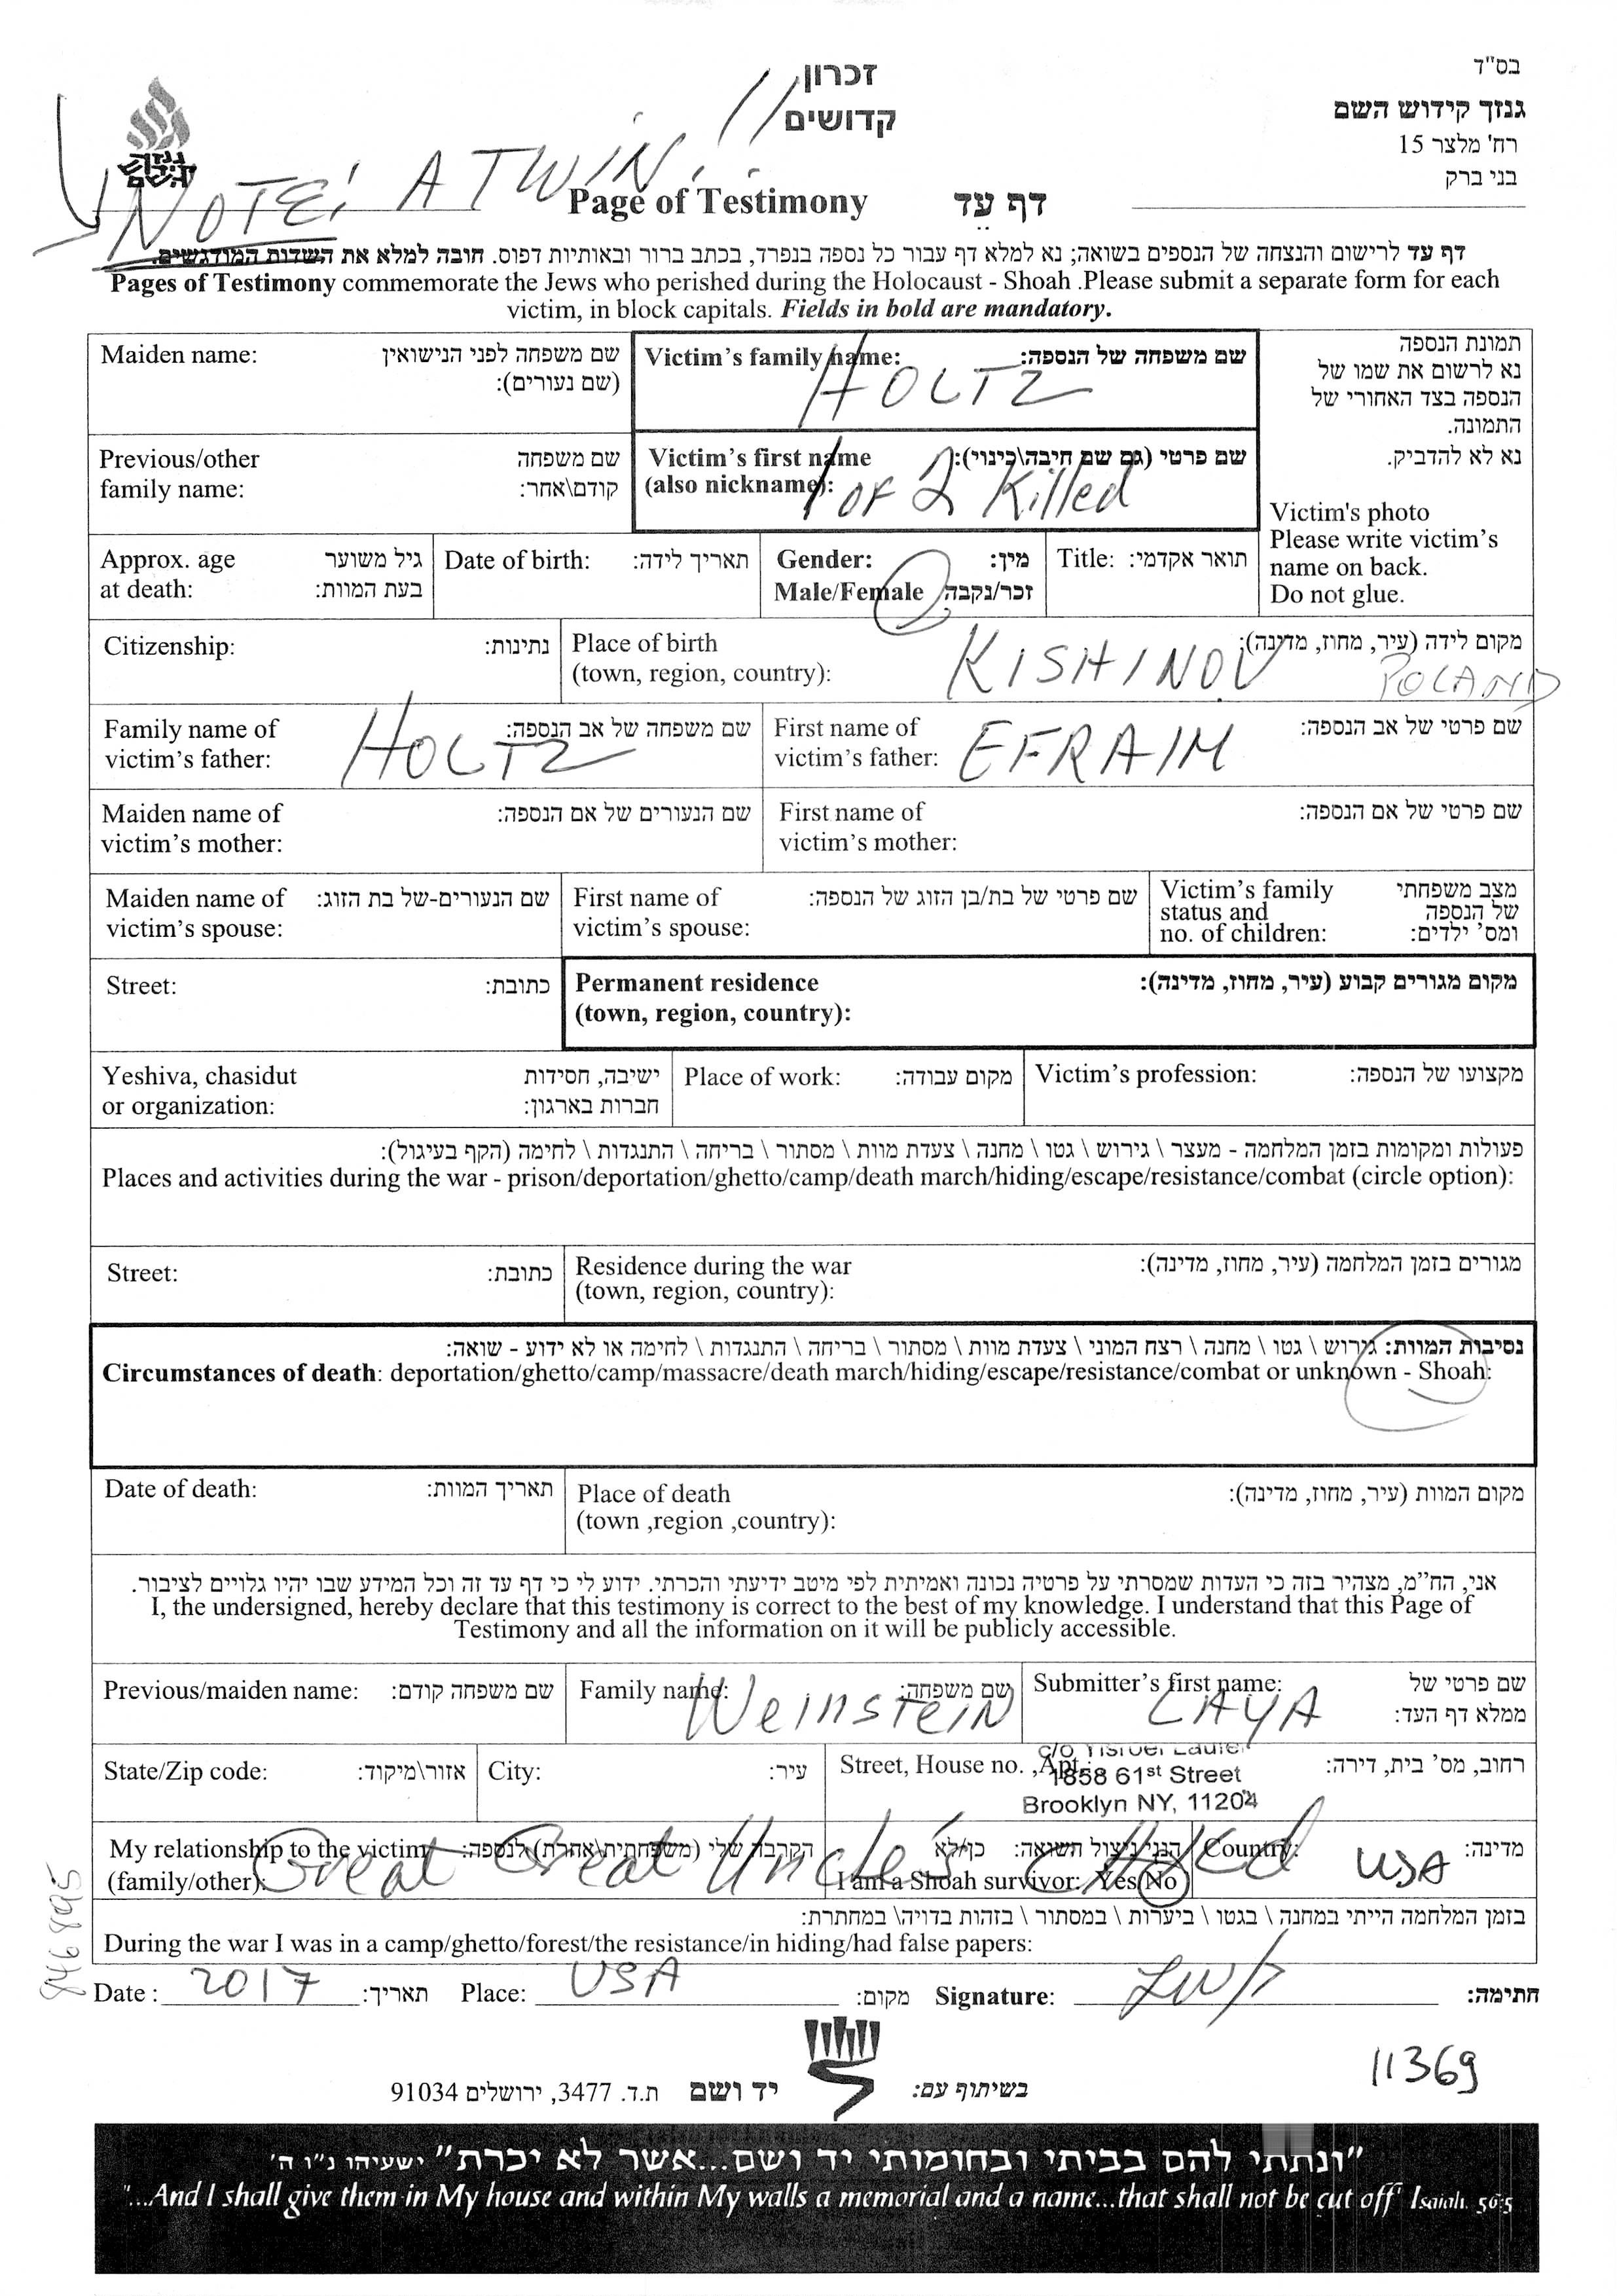 בס"ד
גנזך קידוש השם
רח' מלצר 15
בני ברק
זכרון
קדושים
גנזך קידוש השם
NOTE! A TWIN!!
Page of Testimony דף עד
דף עד לרישום והנצחה של הנספים בשואה; נא למלא דף עבור כל נספה בנפרד, בכתב ברור ובאותיות דפוס. חובה למלא את השדות המודגשים.
Pages of Testimony commemorate the Jews who perished during the Holocaust - Shoah .Please submit a separate form for each
victim, in block capitals. Fields in bold are mandatory.
Maiden name: שם משפחה לפני הנישואין
(שם נעורים):
Victim's family name: שם משפחה של הנספה:
HOLTZ
תמונת הנספה
נא לרשום את שמו של
הנספה בצד האחורי של
התמונה.
נא לא להדביק.
Victim's photo
Please write victim's
name on back.
Do not glue.
Previous/other שם משפחה
family name: קודם\אחר:
Victim's first name שם פרטי (גם שם חיבה\כינוי):
(also nickname):
1 OF 2 Killed
Approx. age גיל משוער
at death: בעת המוות:
Date of birth: תאריך לידה:
Gender: מין:
Male/Female זכר/נקבה
Title: תואר אקדמי:
Citizenship: נתינות:
Place of birth מקום לידה (עיר, מחוז, מדינה):
(town, region, country):
KISHINOV POLAND
Family name of שם משפחה של אב הנספה:
victim's father:
HOLTZ
First name of שם פרטי של אב הנספה:
victim's father:
EFRAIM
Maiden name of שם הנעורים של אם הנספה:
victim's mother:
First name of שם פרטי של אם הנספה:
victim's mother:
Maiden name of שם הנעורים-של בת הזוג:
victim's spouse:
First name of שם פרטי של בת/בן הזוג של הנספה:
victim's spouse:
Victim's family מצב משפחתי
status and של הנספה
no. of children: ומס' ילדים:
Street: כתובת:
Permanent residence מקום מגורים קבוע (עיר, מחוז, מדינה):
(town, region, country):
Yeshiva, chasidut ישיבה, חסידות
or organization: חברות בארגון:
Place of work: מקום עבודה:
Victim's profession: מקצועו של הנספה:
פעולות ומקומות בזמן המלחמה - מעצר \ גירוש \ גטו \ מחנה \ צעדת מוות \ מסתור \ בריחה \ התנגדות \ לחימה (הקף בעיגול):
Places and activities during the war - prison/deportation/ghetto/camp/death march/hiding/escape/resistance/combat (circle option):
Street: כתובת:
Residence during the war מגורים בזמן המלחמה (עיר, מחוז, מדינה):
(town, region, country):
נסיבות המוות: גירוש \ גטו \ מחנה \ רצח המוני \ צעדת מוות \ מסתור \ בריחה \ התנגדות \ לחימה או לא ידוע - שואה:
Circumstances of death: deportation/ghetto/camp/massacre/death march/hiding/escape/resistance/combat or unknown - Shoah:
Date of death: תאריך המוות:
Place of death מקום המוות (עיר, מחוז, מדינה):
(town ,region ,country):
אני, הח"מ, מצהיר בזה כי העדות שמסרתי על פרטיה נכונה ואמיתית לפי מיטב ידיעתי והכרתי. ידוע לי כי דף עד זה וכל המידע שבו יהיו גלויים לציבור.
I, the undersigned, hereby declare that this testimony is correct to the best of my knowledge. I understand that this Page of
Testimony and all the information on it will be publicly accessible.
Previous/maiden name: שם משפחה קודם:
Family name: שם משפחה:
Weinstein
Submitter's first name: שם פרטי של
ממלא דף העד:
LAYA
State/Zip code: אזור\מיקוד:
City: עיר:
Street, House no. ,Apt.: רחוב, מס' בית, דירה:
c/o Yisroel Laufer
1858 61st Street
Brooklyn NY, 11204
My relationship to the victim הקרבה שלי (משפחתית\אחרת) לנספה:
(family/other):
Great Great Uncle's child
הנני ניצול השואה: כן/לא
I am a Shoah survivor: Yes/No
Country: מדינה:
USA
בזמן המלחמה הייתי במחנה \ בגטו \ ביערות \ במסתור \ בזהות בדויה\ במחתרת:
During the war I was in a camp/ghetto/forest/the resistance/in hiding/had false papers:
Date : 2017 תאריך: Place: USA מקום: Signature: חתימה:
846 8095
11369
בשיתוף עם: יד ושם ת.ד. 3477, ירושלים 91034
"ונתתי להם בביתי ובחומותי יד ושם...אשר לא יכרת" ישעיהו נ"ו ה'
"...And I shall give them in My house and within My walls a memorial and a name...that shall not be cut off" Isaiah. 56:5